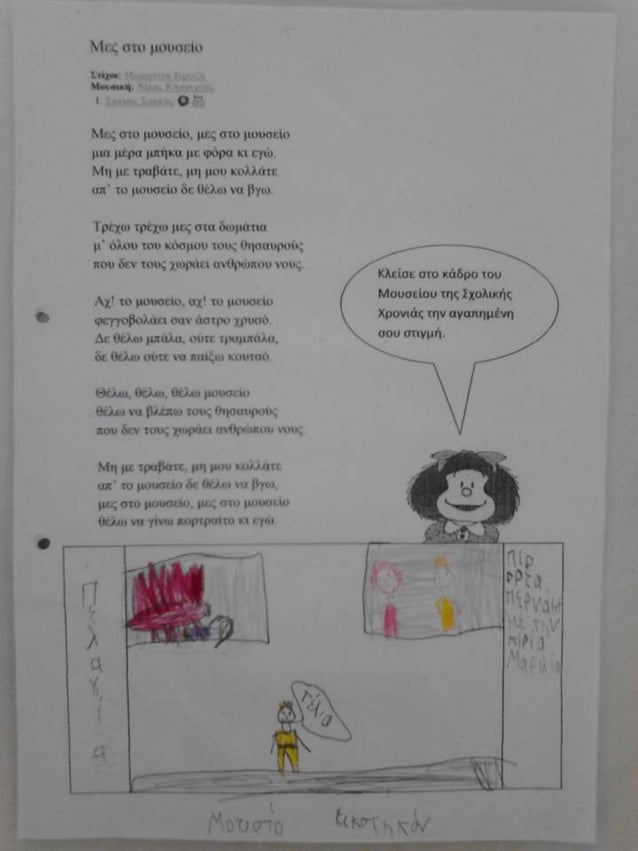 Μες στο μουσείο
Στίχοι: Μαριανίνα Κριεζή
Μουσική: Νίκος Κυπουργός
1.
Μες στο μουσείο, μες στο μουσείο
μια μέρα μπήκα με φόρα κι εγώ.
Μη με τραβάτε, μη μου κολλάτε
απ' το μουσείο δε θέλω να βγω.
Τρέχω τρέχω μες στα δωμάτια
μ' όλου του κόσμου τους θησαυρούς
που δεν τους χωράει ανθρώπου νους.
Αχ! το μουσείο, αχ! το μουσείο
φεγγοβολάει σαν άστρο χρυσό.
Δε θέλω μπάλα, ούτε τραμπάλα,
δε θέλω ούτε να παίξω κουτσό.
Θέλω, θέλω, θέλω μουσείο
θέλω να βλέπω τους θησαυρούς
που δεν τους χωράει ανθρώπου νους.
Μη με τραβάτε, μη μου κολλάτε
απ' το μουσείο δε θέλω να βγω,
μες στο μουσείο, μες στο μουσείο
θέλω να γίνω πορτραίτο κι εγώ.
Κλείσε στο κάδρο του
Μουσείου της Σχολικής
Χρονιάς την αγαπημένη
σου στιγμή.
Πελαγία
τέλια
με την
κιρία
Μουσίο